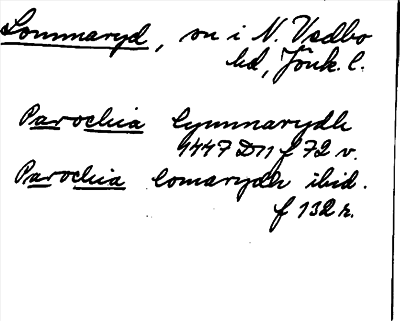 Lommaryd, sn i N. Vedbo
hd, Jönk. l.
Parochia Lynmarydh
1447 Dn f 72 v.
Parochia Lomarydh ibid.
f 132 r.